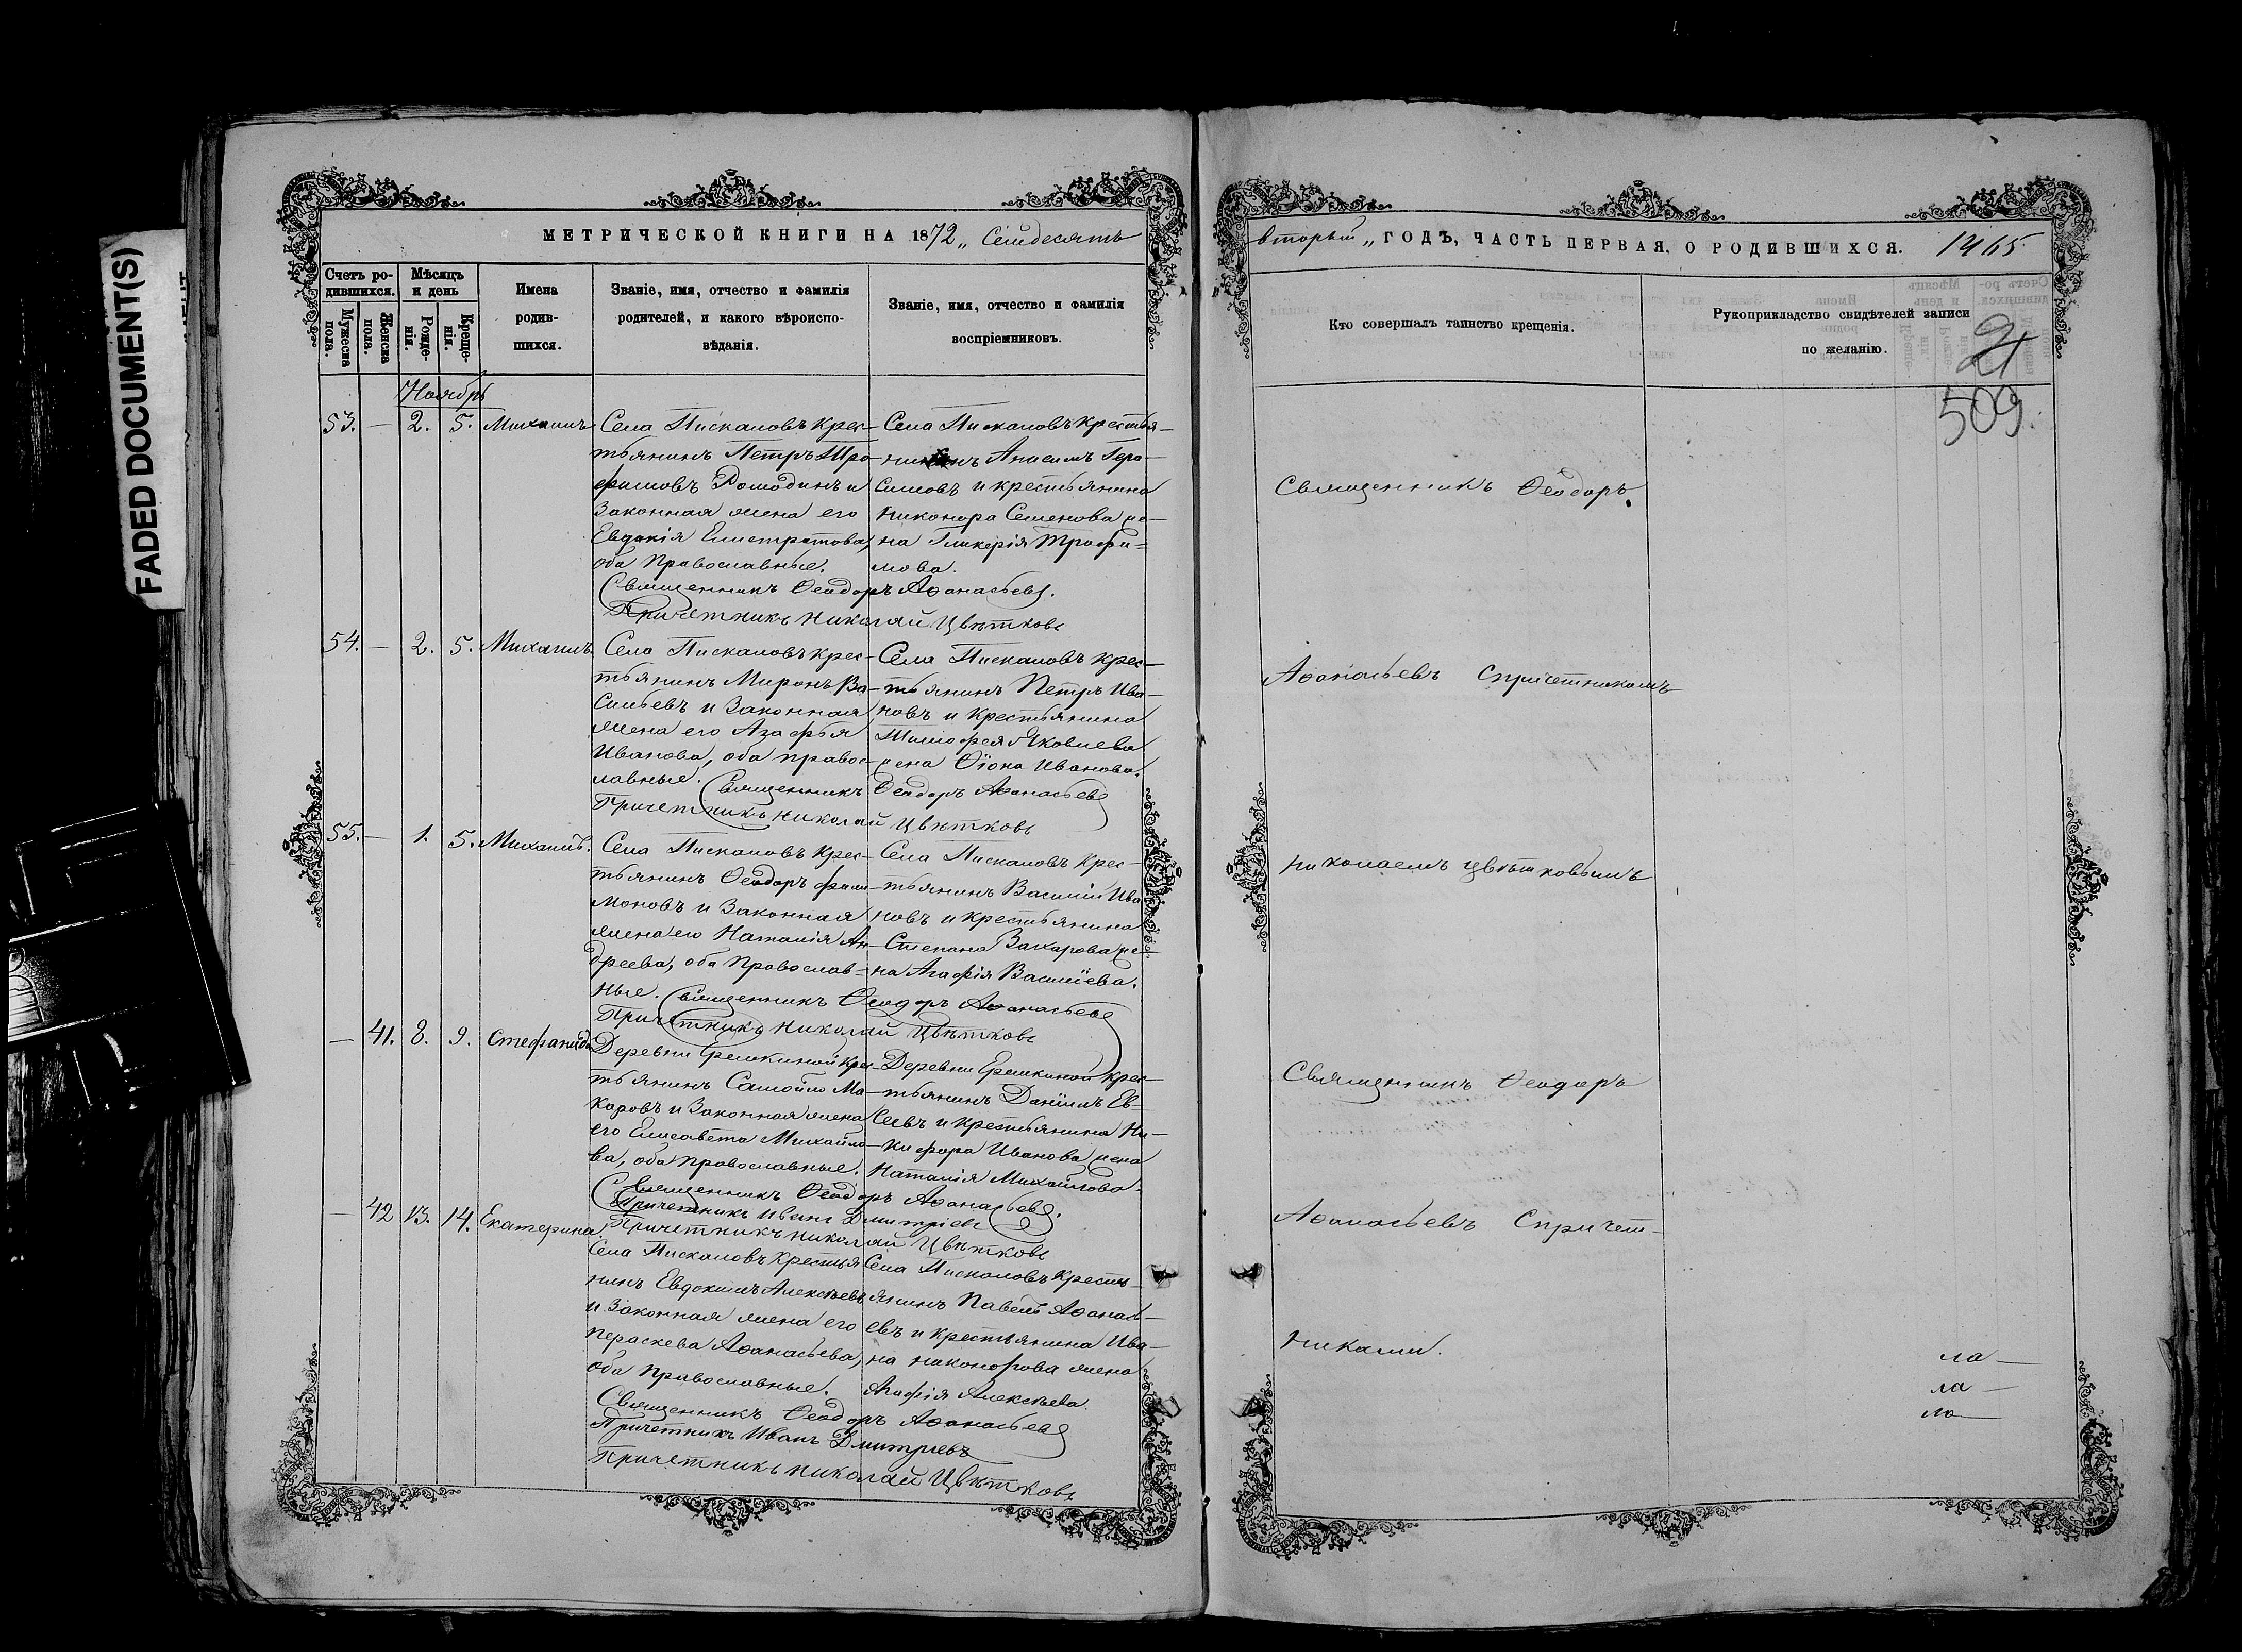 FADED DOCUMENT(S)
МЕТРИЧЕСКОЙ КНИГИ НА 1872„ Семдесятъ
Счетъ ро-
дившихся.
Мужеска
пола.
Женска
пола.
Мѣсяцъ
и день
Рожде-
нія.
Креще-
нія.
Имена
родив-
шихся.
Званіе, имя, отчество и фамилія
родителей, и какого вѣроиспо-
вѣданія.
Званіе, имя, отчество и фамилія
воспріемниковъ.
Ноябрь
53. — 2. 5. Михаилъ
Села Пискаловъ Крес-
тьянинъ Петръ Тро-
фимовъ Ромодинъ и
Законная жена его
Евдокія Елистратова,
оба Православные.
Села Пискаловъ Крестья-
нинъ Анисимъ Гера-
симовъ и крестьянина
Никонора Семенова же-
на Гликерія Трофи-
мова.
Священникъ Ѳеодоръ Аѳанасьевъ.
Причетникъ Николай Цвѣтковъ
54. — 2. 5. Михаилъ.
Села Пискаловъ крес-
тьянинъ Миронъ Ва-
сильевъ и Законная
жена его Агафья
Иванова, оба правос-
лавные.
Села Пискаловъ крес-
тьянинъ Петръ Ива-
новъ и Крестьянина
Тимофея Яковлева
жена Ѳіона Иванова.
Священникъ Ѳеодоръ Аѳанасьевъ
Причетникъ Николай Цвѣтковъ
55. — 1. 5. Михаилъ.
Села Пискаловъ Крес-
тьянинъ Ѳеодоръ Фили-
моновъ и Законная
жена его Наталія Ан-
дреева, оба Православ-
ные.
Села Пискаловъ Крес-
тьянинъ Василій Ива
новъ и Крестьянина
Степана Захарова же-
на Агафія Василіева.
Священникъ Ѳеодоръ Аѳанасьевъ
Причетникъ Николай Цвѣтковъ
— 41. 8. 9. Стефанида
Деревни Еремкиной Крес-
тьянинъ Самойло Ма-
каровъ и Законная жена
его Елисавета Михайло-
ва, оба православные.
Деревни Еремкиной Крес-
тьянинъ Даніилъ Ев-
сеевъ и Крестьянина Ни-
кифора Иванова жена
Наталія Михайлова.
Священникъ Ѳеодоръ Аѳанасьевъ.
Причетникъ Иванъ Дмитріевъ
Причетникъ Николай Цвѣтковъ
— 42 13. 14. Екатерина.
Села Пискаловъ Крестья
нинъ Евдокимъ Алексѣевъ
и Законная жена его
Пераскева Аѳанасьева,
оба Православные.
Села Пискаловъ Кресть-
янинъ Павелъ Аѳанась-
евъ и Крестьянина Ива-
на Наконорова жена
Агафія Алексѣева.
Священникъ Ѳеодоръ Аѳанасьевъ
Причетникъ Иванъ Дмитріевъ
Причетникъ Николай Цвѣтковъ
вторый „ ГОДЪ, ЧАСТЬ ПЕРВАЯ, О РОДИВШИХСЯ. 1465
Кто совершалъ таинство крещенія.
Рукоприкладство свидѣтелей записи
по желанію.
21
509.
Священникъ Ѳеодоръ
Аѳанасьевъ Спричетникомъ
Николаемъ Цвѣтковымъ
Священникъ Ѳеодоръ
Аѳанасьевъ Спричет-
никами.
ла —
ла —
ла —